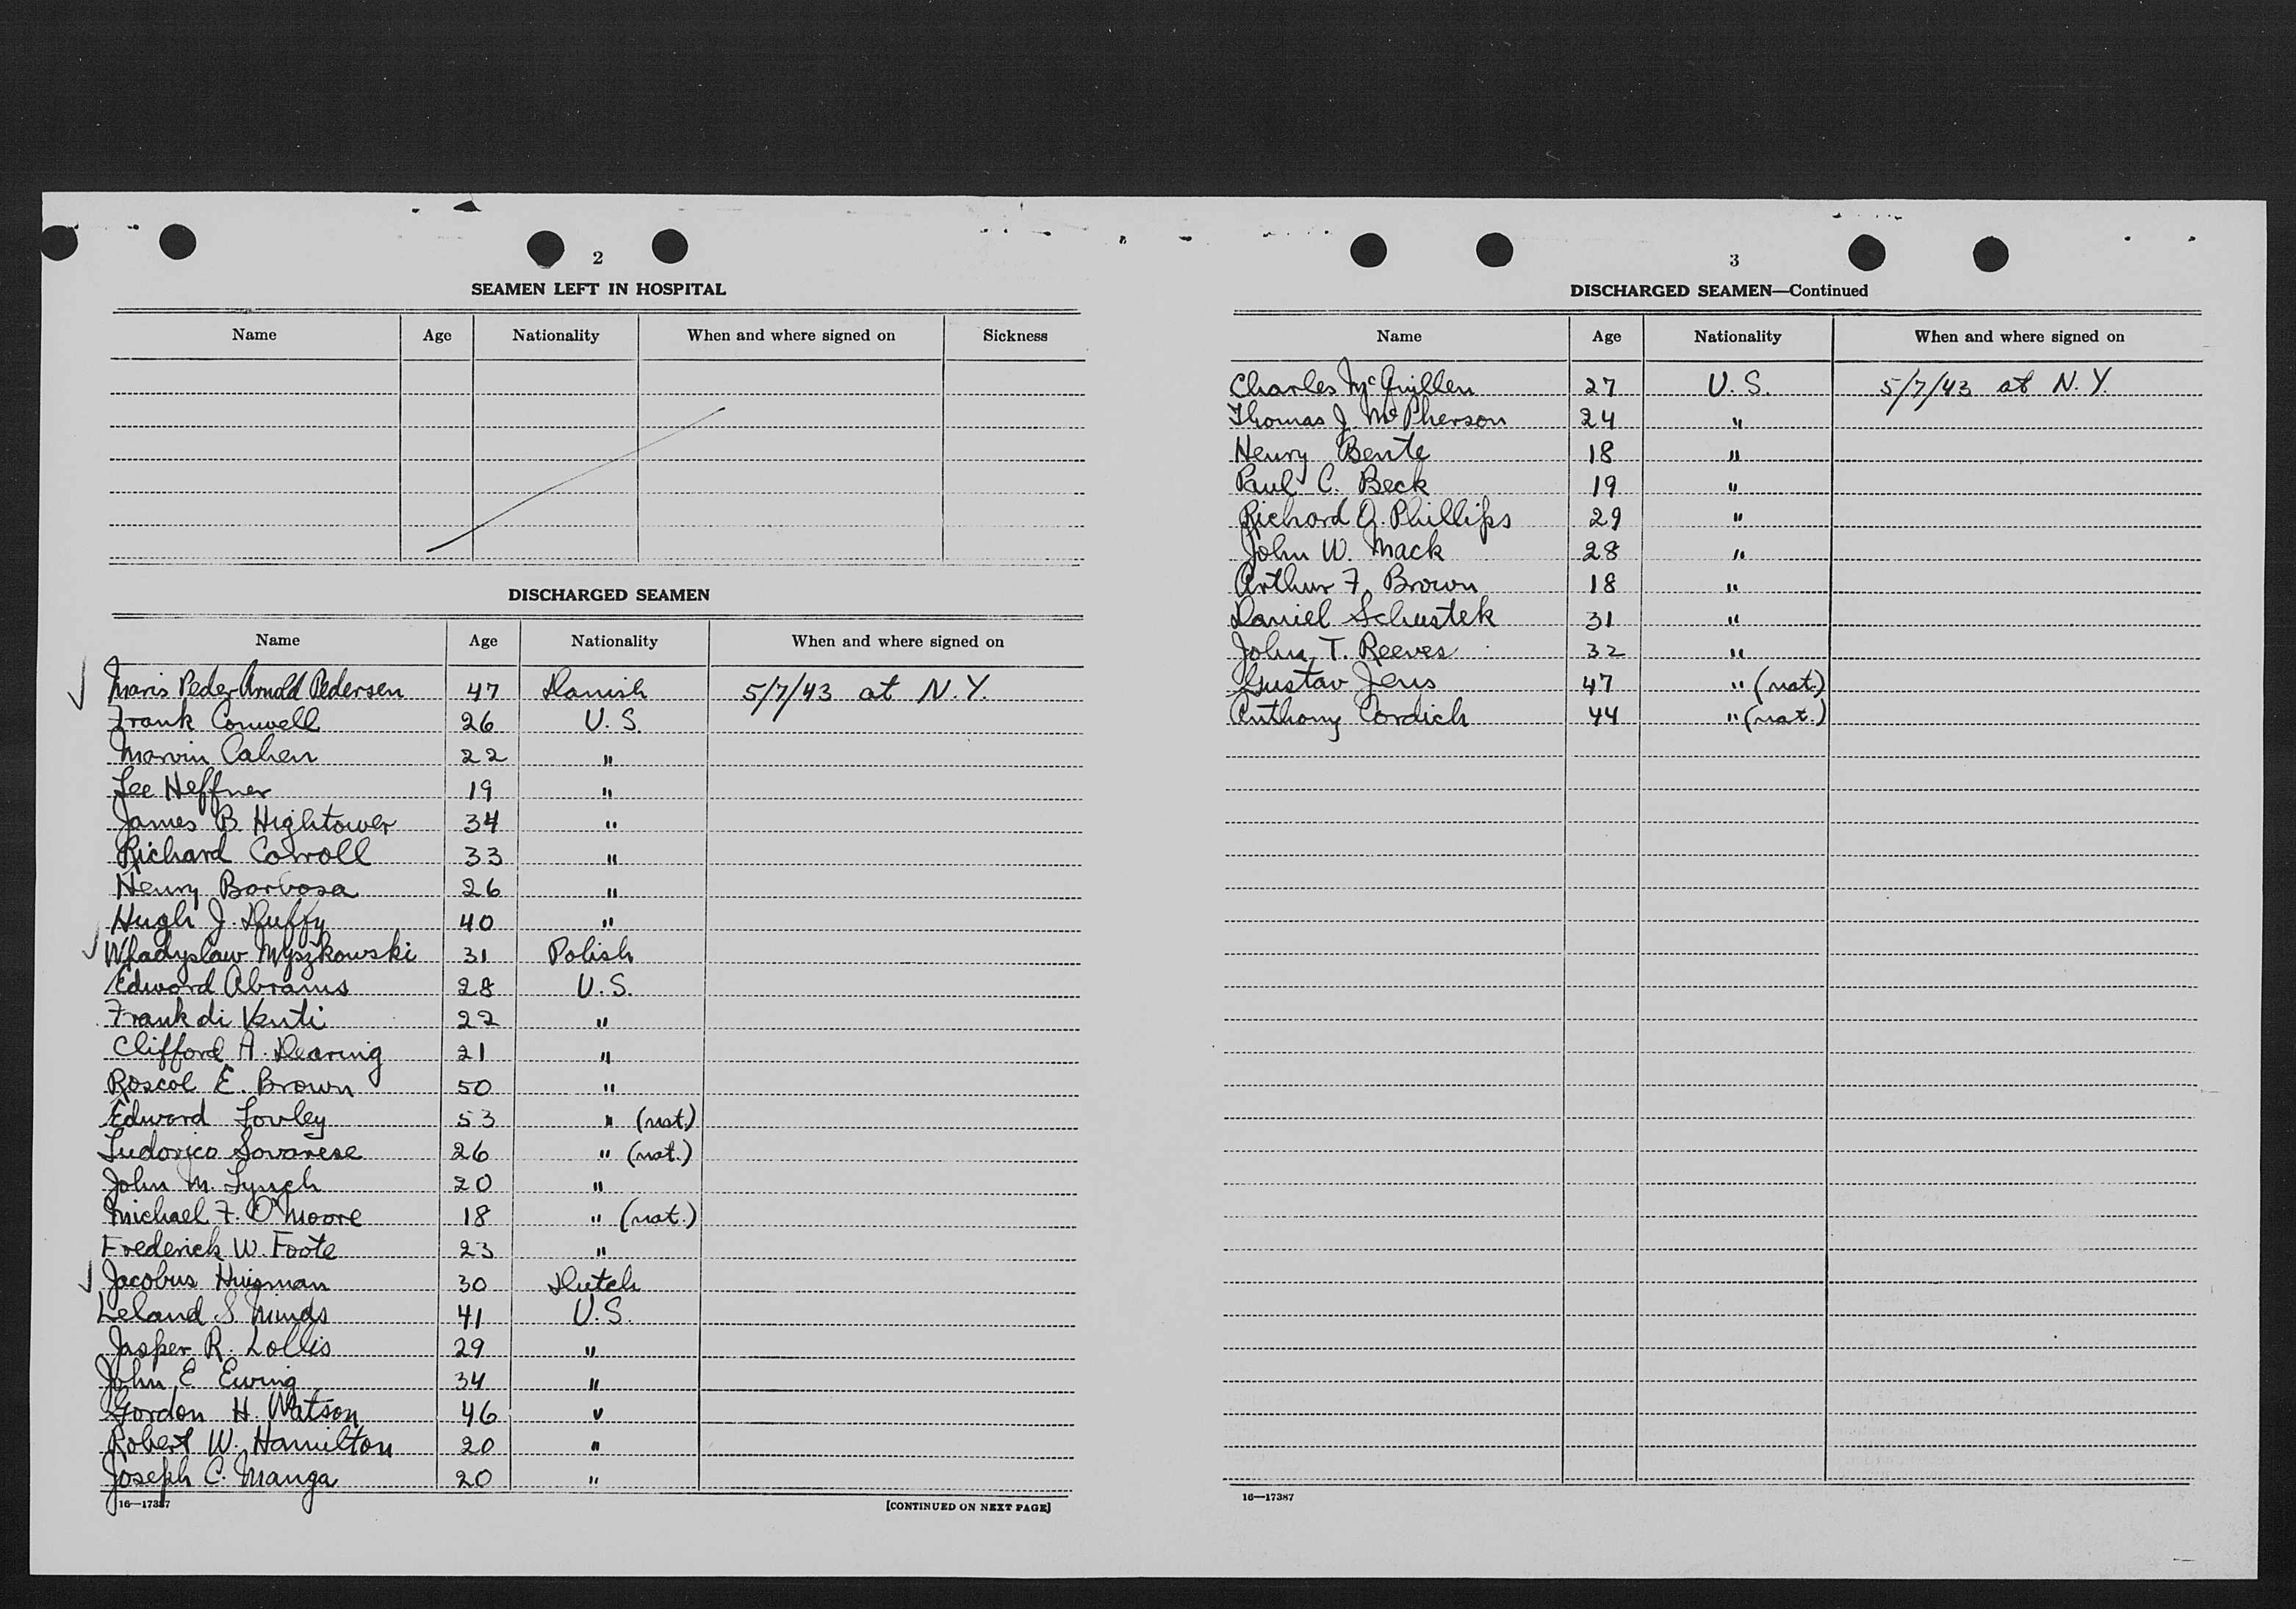 2
SEAMEN LEFT IN HOSPITAL
Name Age Nationality When and where signed on Sickness
DISCHARGED SEAMEN
Name Age Nationality When and where signed on
Maris Peder Arnold Pedersen 47 Danish 5/7/43 at N.Y.
Frank Conwell 26 U.S.
Marvin Cahen 22 "
Lee Heffner 19 "
James B. Hightower 34 "
Richard Carroll 33 "
Henry Barbosa 26 "
Hugh J. Duffy 40 "
Wladyslaw Myszkowski 31 Polish
Edward Abrams 28 U.S.
Frank di Venti 22 "
Clifford A. Dearing 21 "
Roscol E. Brown 50 "
Edward Fowley 53 " (nat.)
Ludovico Savarese 26 " (nat.)
John M. Lynch 20 "
Michael F. O'Moore 18 " (nat.)
Frederick W. Foote 23 "
Jacobus Huisman 30 Dutch
Leland S. Minds 41 U.S.
Jasper R. Lollis 29 "
John E Ewing 34 "
Gordon H. Watson 46 "
Robert W. Hamilton 20 "
Joseph C. Manga 20 "
16—17387 [CONTINUED ON NEXT PAGE]
3
DISCHARGED SEAMEN—Continued
Name Age Nationality When and where signed on
Charles McQuillen 27 U.S. 5/7/43 at N.Y.
Thomas J. McPherson 24 "
Henry Bente 18 "
Paul C. Beck 19 "
Richard Q. Phillips 29 "
John W. Mack 28 "
Arthur F. Brown 18 "
Daniel Schustek 31 "
John T. Reeves 32 "
Gustav Jens 47 " (nat.)
Anthony Cordich 44 " (nat.)
16—17387